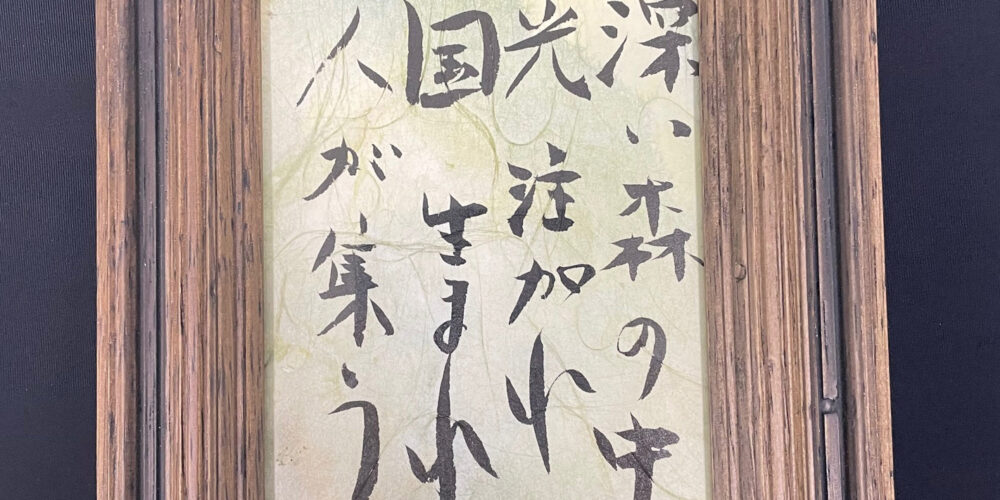 深い森の中
光注がれ
国生まれ
人が集う